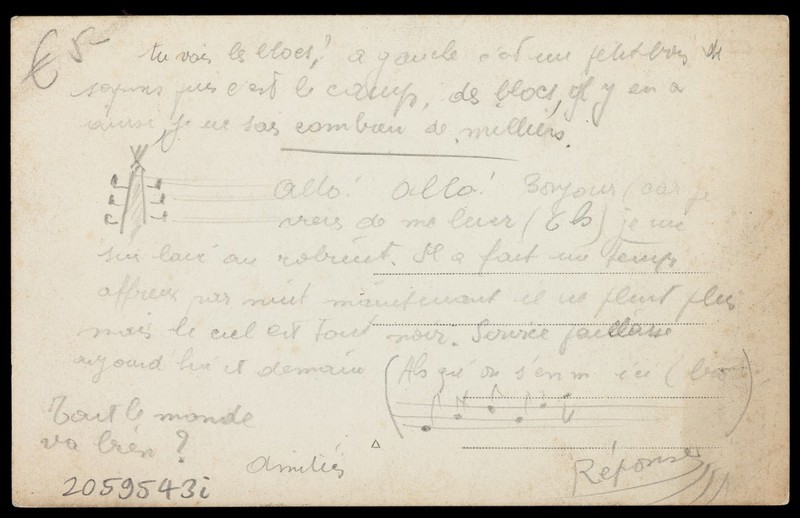 €5
tu vois les blocs! a gauche c'est un petit bois de
sapins puis c'est le camp, des blocs, il y en a
aussi, je ne sais combien de milliers.
Allo! Allo! Bonjour (car je
viens de me lever (6h) je me
suis lavé au robinet. Il a fait un temps
affreux par nuit maintenant il ne pleut plus
mais le ciel est tout noir. Soirée
aujourd'hui et demain (Ah qu'on s'enm ici (
Tout le monde
va bien?
Amitiés
Réponse
2059543i